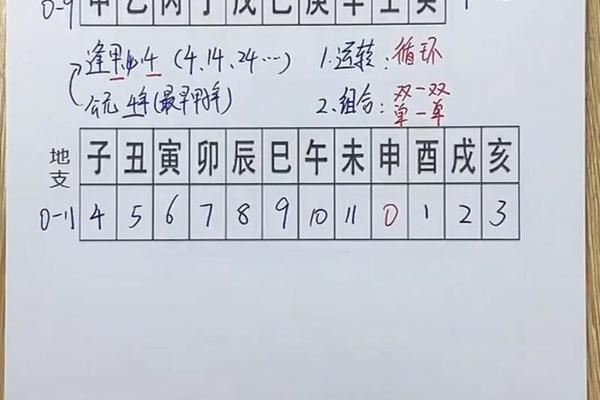 0-9 甲 乙 丙 丁 戊 己 庚 辛 壬 癸
逢甲必4 (4、14、24…) 1.运转:循环
公元4年(最早甲年) 2、组合:双—双
单—单
地支 子 丑 寅 卯 辰 巳 午 未 申 酉 戌 亥
0-11 4 5 6 7 8 9 10 11 0 1 2 3